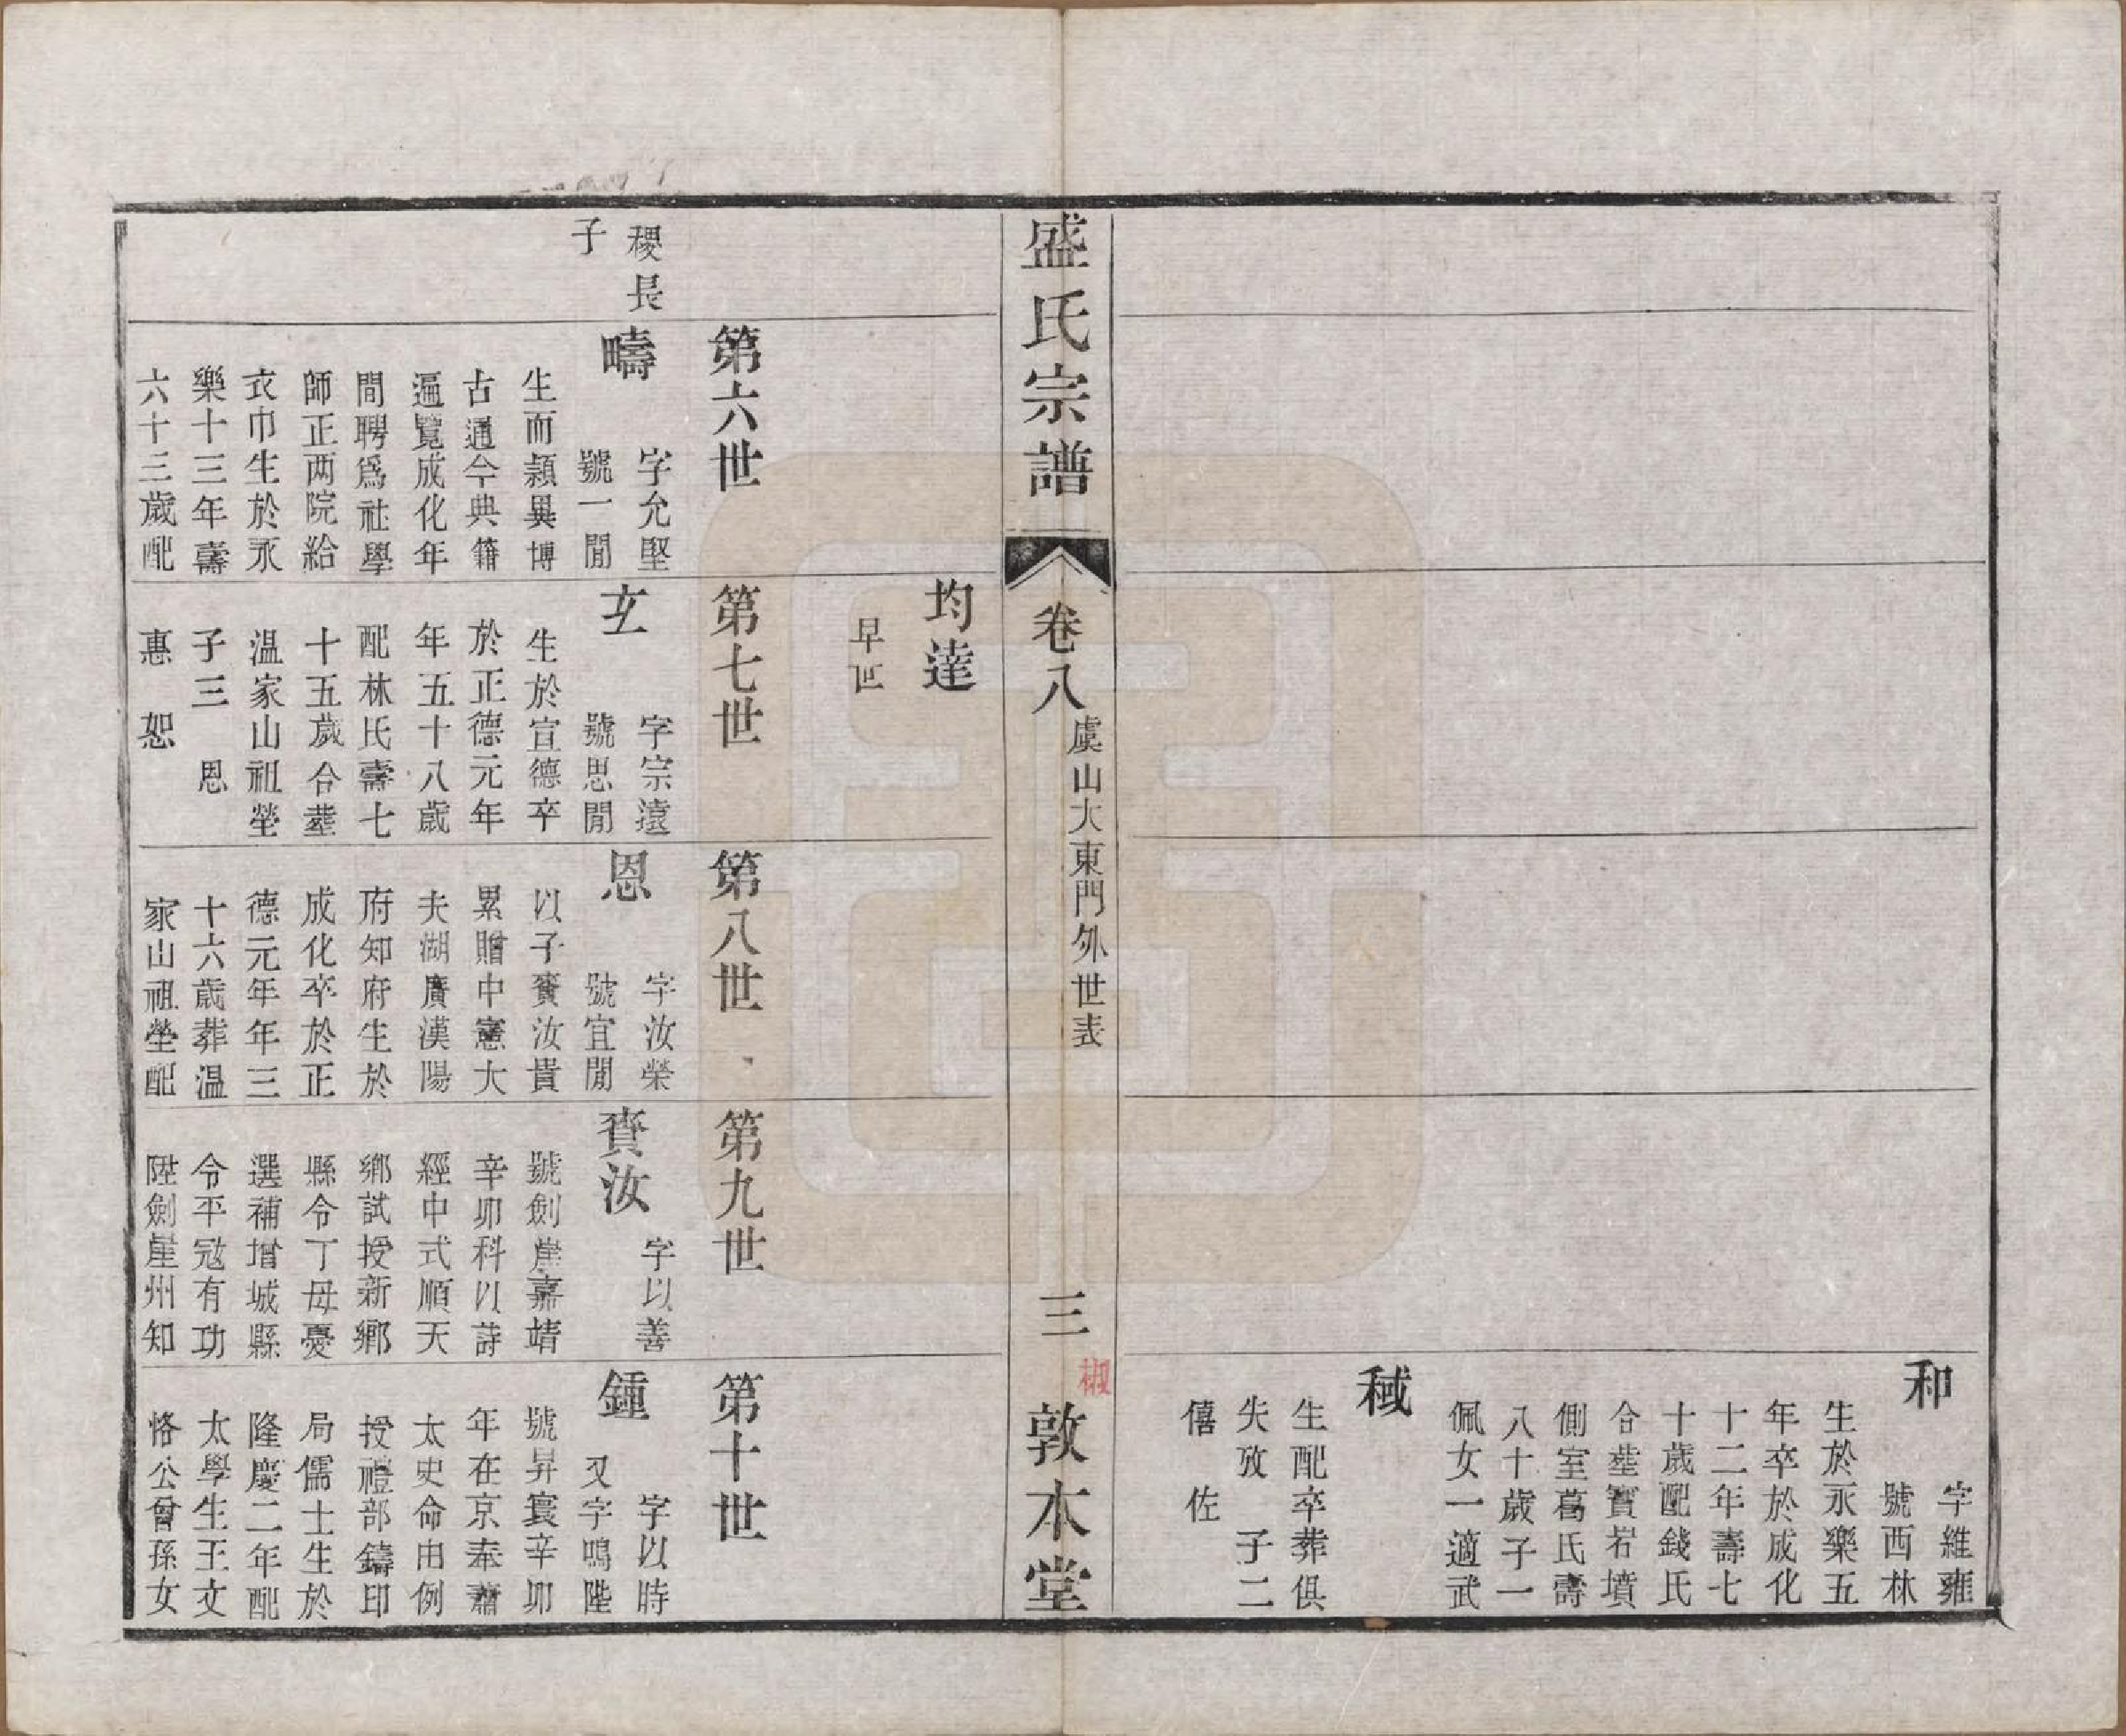 和
字維雍
號西林
生於永樂五
年卒於成化
十二年壽七
十歲配錢氏
合塟寳岩墳
側室葛氏壽
八十歲子一
佩女一適武
稢
生配卒葬俱
失攷 子二
僖 佐
盛氏宗譜
卷八
虞山大東門外世表
三
椒
敦本堂
均達
早世
第六世
稷長
子
疇
字允堅
號一閒
生而穎異博
古通今典籍
遍覽成化年
間聘爲社學
師正两院給
衣巾生於永
樂十三年壽
六十三歲配
第七世
玄
字宗遠
號思閒
生於宣德卒
於正德元年
年五十八歲
配林氏壽七
十五歲合塟
溫家山祖塋
子三 恩
惠 恕
第八世
恩
字汝榮
號宜閒
以子賚汝貴
累贈中憲大
夫湖廣漢陽
府知府生於
成化卒於正
德元年年三
十六歲葬溫
家山祖塋配
第九世
賚汝
字以善
號劍崖嘉靖
辛卯科以詩
經中式順天
鄉試授新鄉
縣令丁母憂
選補增城縣
令平冦有功
陞劍崖州知
第十世
鍾
字以時
又字鳴陛
號昇寰辛卯
年在京奉蕭
太史命由例
授禮部鑄印
局儒士生於
隆慶二年配
太學生王文
恪公曾孫女